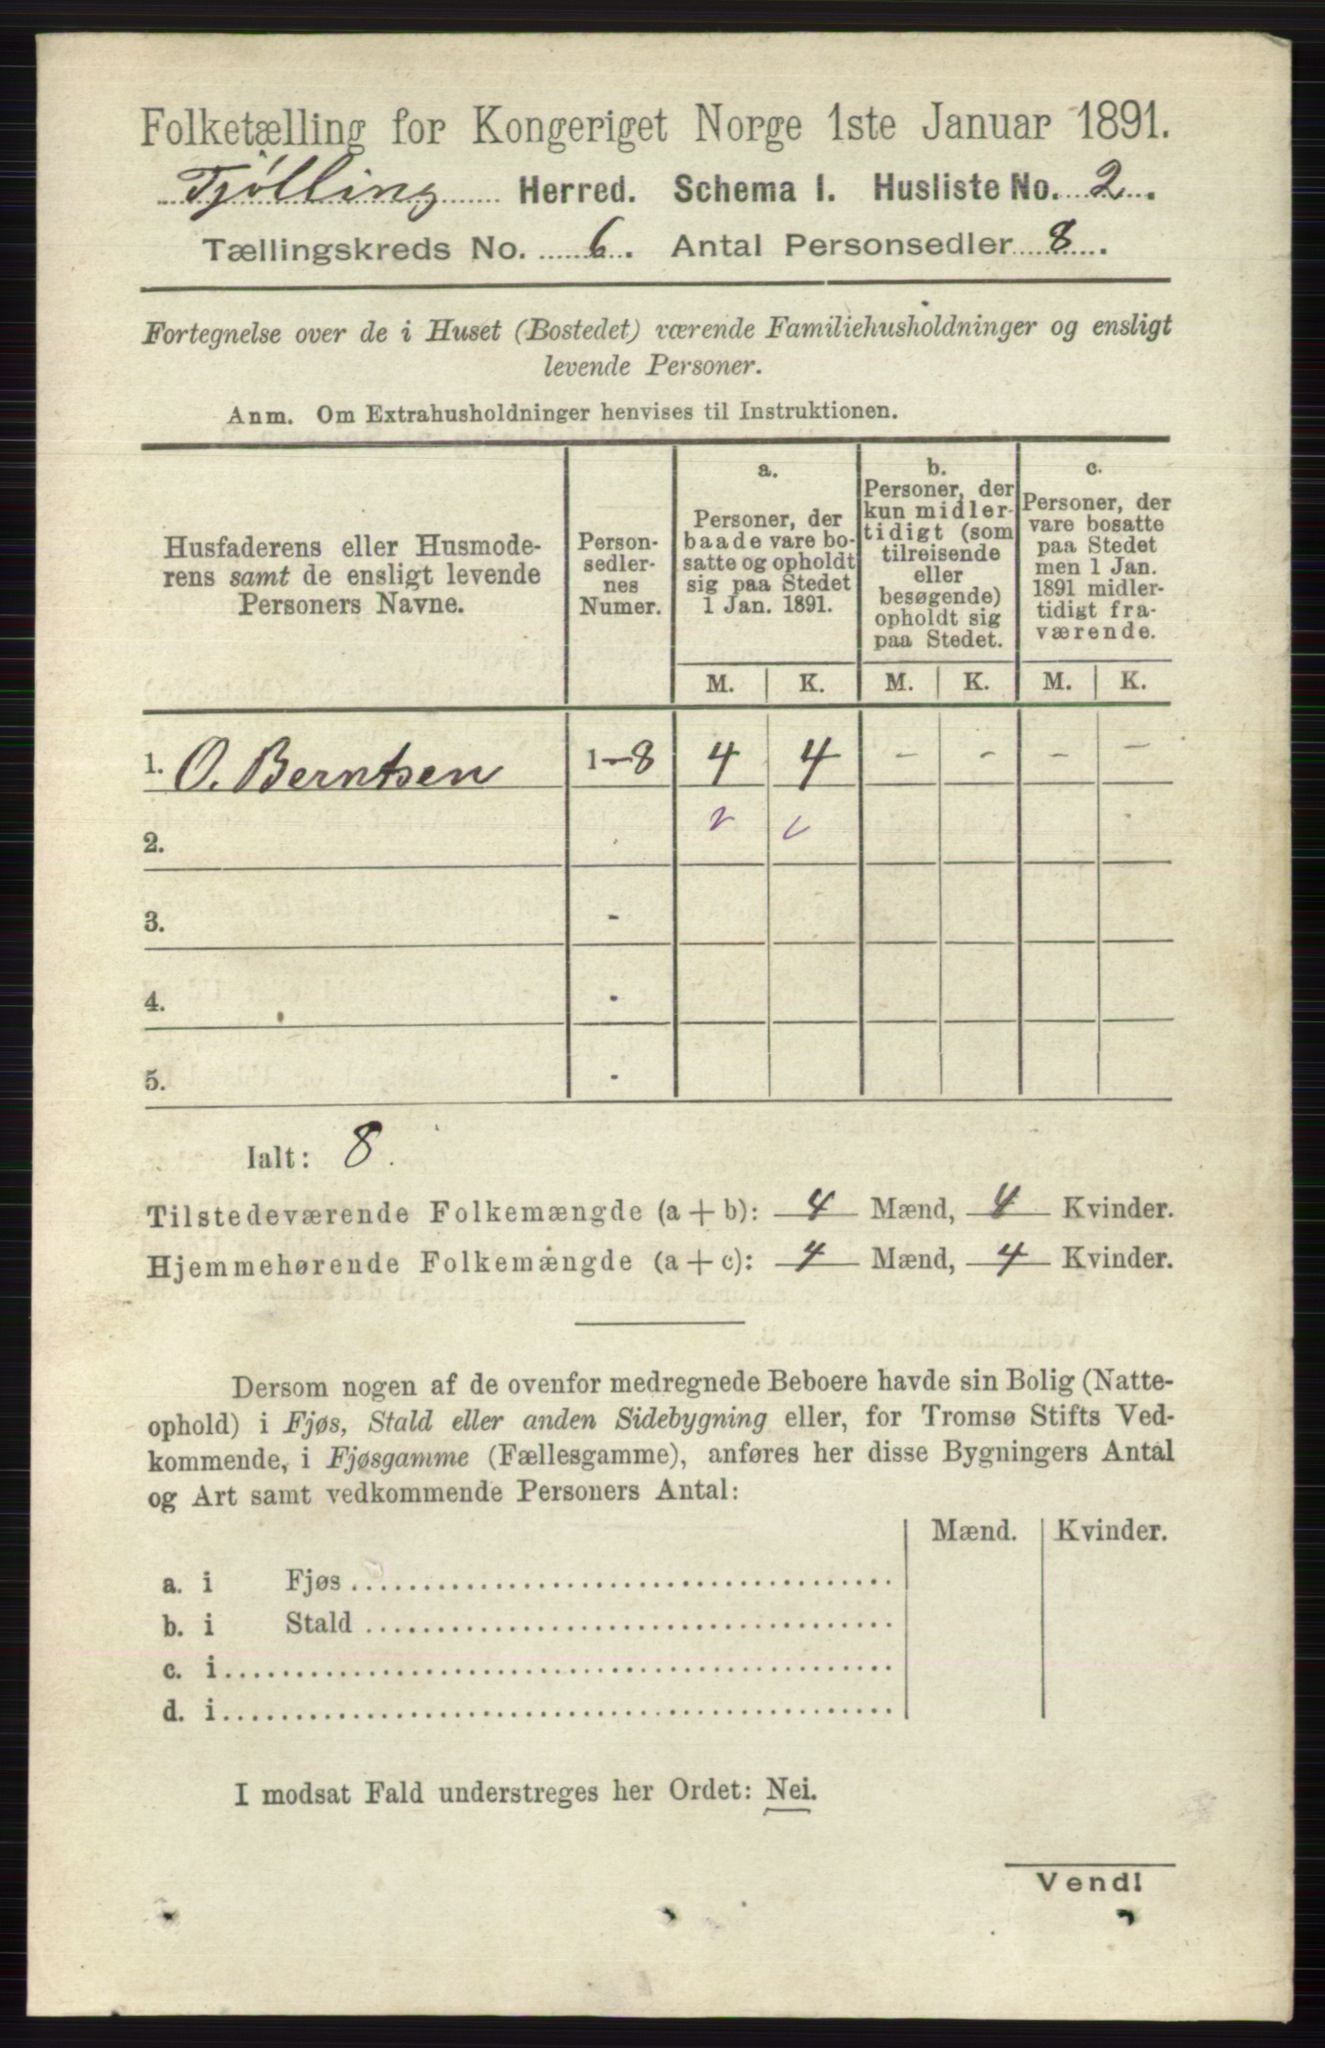 Folketælling for Kongeriget Norge 1ste Januar 1891.
Tjølling Herred. Schema I. Husliste No. 2.
Tællingskreds No. 6. Antal Personsedler 8.
Fortegnelse over de i Huset (Bostedet) værende Familiehusholdninger og ensligt
levende Personer.
Anm. Om Extrahusholdninger henvises til Instruktionen.
Husfaderens eller Husmode-
rens samt de ensligt levende
Personers Navne.
Person-
sedler-
nes
Numer.
a.
Personer, der
baade vare bo-
satte og opholdt
sig paa Stedet
1 Jan. 1891.
b.
Personer, der
kun midler-
tidigt (som
tilreisende
eller
besøgende)
opholdt sig
paa Stedet.
c.
Personer, der
vare bosatte
paa Stedet
men 1 Jan.
1891 midler-
tidigt fra-
værende.
M. K. M. K. M. K.
1. O. Berntsen 1-8 4 4 - - - -
2.
3. -
4. -
5. -
Ialt: 8.
Tilstedeværende Folkemængde (a + b): 4 Mænd, 4 Kvinder.
Hjemmehørende Folkemængde (a + c): 4 Mænd, 4 Kvinder.
Dersom nogen af de ovenfor medregnede Beboere havde sin Bolig (Natte-
ophold) i Fjøs, Stald eller anden Sidebygning eller, for Tromsø Stifts Ved-
kommende, i Fjøsgamme (Fællesgamme), anføres her disse Bygningers Antal
og Art samt vedkommende Personers Antal:
Mænd. Kvinder.
a. i Fjøs
b. i Stald
c. i
d. i
I modsat Fald understreges her Ordet: Nei.
Vend!